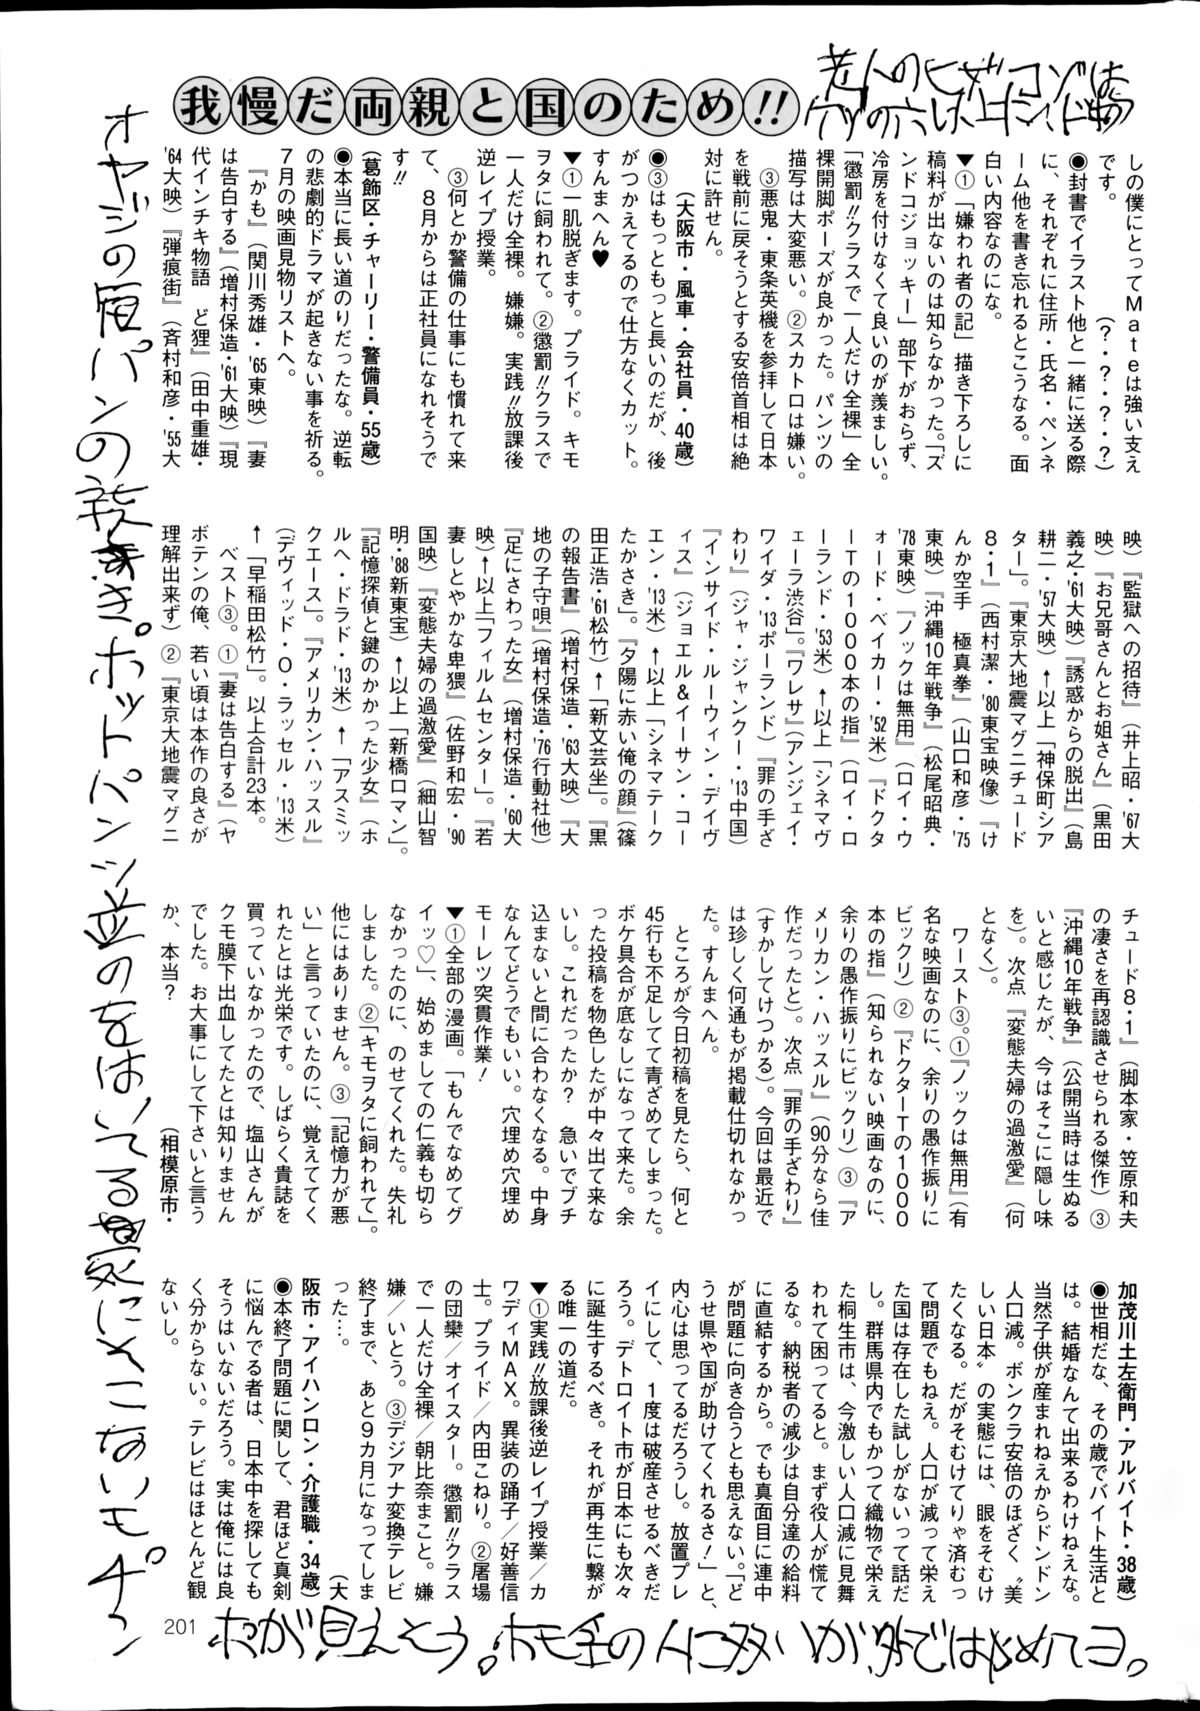 我慢だ両親と国のため!!
しの僕にとってMateは強い支え
です。　　　　　　(?・?・?・?)
●封書でイラスト他と一緒に送る際
に、それぞれに住所・氏名・ペンネ
ーム他を書き忘れるとこうなる。面
白い内容なのにな。
▼①「嫌われ者の記」描き下ろしに
稿料が出ないのは知らなかった。「ズ
ンドコジョッキー」部下がおらず、
冷房を付けなくて良いのが羨ましい。
「懲罰!!クラスで一人だけ全裸」全
裸開脚ポーズが良かった。パンツの
描写は大変悪い。②スカトロは嫌い。
③悪鬼・東条英機を参拝して日本
を戦前に戻そうとする安倍首相は絶
対に許せん。
(大阪市・風車・会社員・40歳)
●③はもっともっと長いのだが、後
がつかえてるので仕方なくカット。
すんまへん♥
▼①一肌脱ぎます。プライド。キモ
ヲタに飼われて。②懲罰!!クラスで
一人だけ全裸。嫌嫌。実践!!放課後
逆レイプ授業。
③何とか警備の仕事にも慣れて来
て、8月からは正社員になれそうで
す!!
(葛飾区・チャーリー・警備員・55歳)
●本当に長い道のりだったな。逆転
の悲劇的ドラマが起きない事を祈る。
7月の映画見物リストへ。
『かも』(関川秀雄・'65東映)『妻
は告白する』(増村保造・'61大映)『現
代インチキ物語　ど狸』(田中重雄・
'64大映)『弾痕街』(斉村和彦・'55大
映)『監獄への招待』(井上昭・'67大
映)『お兄哥さんとお姐さん』(黒田
義之・'61大映)『誘惑からの脱出』(島
耕二・'57大映)↑以上「神保町シア
ター」。『東京大地震マグニチュード
8・1』(西村潔・'80東宝映像)『け
んか空手　極真拳』(山口和彦・'75
東映)『沖縄10年戦争』(松尾昭典・
'78東映)『ノックは無用』(ロイ・ウ
ォード・ベイカー・'52米)『ドクタ
ーTの1000本の指』(ロイ・ロ
ーランド・'53米)↑以上「シネマヴ
ェーラ渋谷」。『ワレサ』(アンジェイ・
ワイダ・'13ポーランド)『罪の手ざ
わり』(ジャ・ジャンクー・'13中国)
『インサイド・ルーウィン・デイヴ
ィス』(ジョエル&イーサン・コー
エン・'13米)↑以上「シネマテーク
たかさき」。『夕陽に赤い俺の顔』(篠
田正浩・'61松竹)↑「新文芸坐」。『黒
の報告書』(増村保造・'63大映)『大
地の子守唄』(増村保造・'76行動社他)
『足にさわった女』(増村保造・'60大
映)↑以上「フィルムセンター」。『若
妻しとやかな卑猥』(佐野和宏・'90
国映)『変態夫婦の過激愛』(細山智
明・'88新東宝)↑以上「新橋ロマン」。
『記憶探偵と鍵のかかった少女』(ホ
ルヘ・ドラド・'13米)↑「アスミッ
クエース」。『アメリカン・ハッスル』
(デヴィッド・O・ラッセル・'13米)
↑「早稲田松竹」。以上合計23本。
ベスト③。①『妻は告白する』(ヤ
ボテンの俺、若い頃は本作の良さが
理解出来ず)②『東京大地震マグニ
チュード8・1』(脚本家・笠原和夫
の凄さを再認識させられる傑作)③
『沖縄10年戦争』(公開当時は生ぬる
いと感じたが、今はそこに隠し味
を)。次点『変態夫婦の過激愛』(何
となく)。
ワースト③。①『ノックは無用』(有
名な映画なのに、余りの愚作振りに
ビックリ)②『ドクターTの1000
本の指』(知られない映画なのに、
余りの愚作振りにビックリ)③『ア
メリカン・ハッスル』(90分なら佳
作だったと)。次点『罪の手ざわり』
(すかしてけつかる)。今回は最近で
は珍しく何通もが掲載仕切れなかっ
た。すんまへん。
ところが今日初稿を見たら、何と
45行も不足してて青ざめてしまった。
ボケ具合が底なしになって来た。余
った投稿を物色したが中々出て来な
いし。これだったか?　急いでブチ
込まないと間に合わなくなる。中身
なんてどうでもいい。穴埋め穴埋め
モーレツ突貫作業!
▼①全部の漫画。「もんでなめてグ
イッ♡」、始めましての仁義も切ら
なかったのに、のせてくれた。失礼
しました。②「キモヲタに飼われて」。
他にはありません。③「記憶力が悪
い」と言っていたのに、覚えててく
れたとは光栄です。しばらく貴誌を
買っていなかったので、塩山さんが
クモ膜下出血してたとは知りません
でした。お大事にして下さいと言う
か、本当?
(相模原市・
加茂川土左衛門・アルバイト・38歳)
●世相だな、その歳でバイト生活と
は。結婚なんて出来るわけねえな。
当然子供が産まれねえからドンドン
人口減。ボンクラ安倍のほざく〝美
しい日本〟の実態には、眼をそむけ
たくなる。だがそむけてりゃ済むっ
て問題でもねえ。人口が減って栄え
た国は存在した試しがないって話だ
し。群馬県内でもかつて織物で栄え
た桐生市は、今激しい人口減に見舞
われて困ってると。まず役人が慌て
るな。納税者の減少は自分達の給料
に直結するから。でも真面目に連中
が問題に向き合うとも思えない。「ど
うせ県や国が助けてくれるさ!」と、
内心は思ってるだろうし。放置プレ
イにして、1度は破産させるべきだ
ろう。デトロイト市が日本にも次々
に誕生するべき。それが再生に繋が
る唯一の道だ。
▼①実践!!放課後逆レイプ授業/カ
ワディMAX。異装の踊子/好善信
士。プライド/内田こねり。②屠場
の団欒/オイスター。懲罰!!クラス
で一人だけ全裸/朝比奈まこと。嫌
嫌/いとう。③デジアナ変換テレビ
終了まで、あと9カ月になってしま
った…。　　　　　　　　　　(大
阪市・アイハンロン・介護職・34歳)
●本終了問題に関して、君ほど真剣
に悩んでる者は、日本中を探しても
そうはいないだろう。実は俺には良
く分からない。テレビはほとんど観
ないし。
201